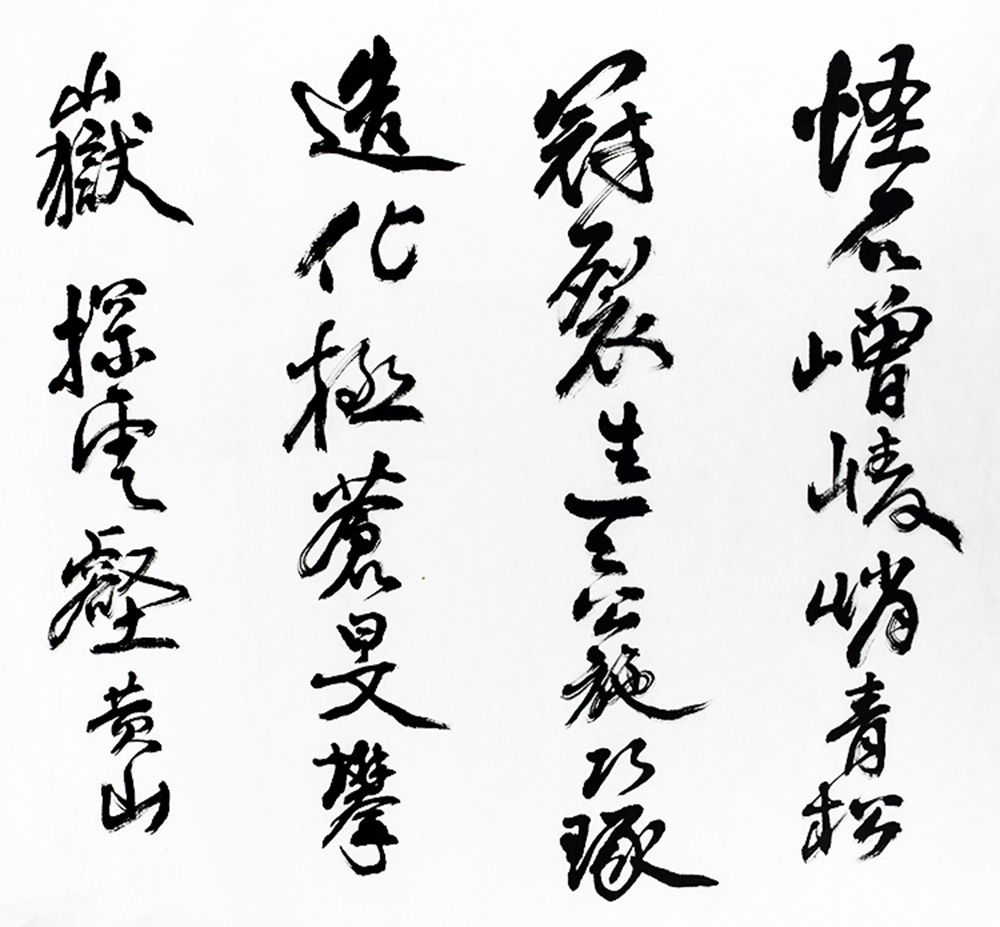 怪石嶒崚峭青松
冠裂生天公施巧琢
造化極蒼旻攀
嶽探雲壑黄山